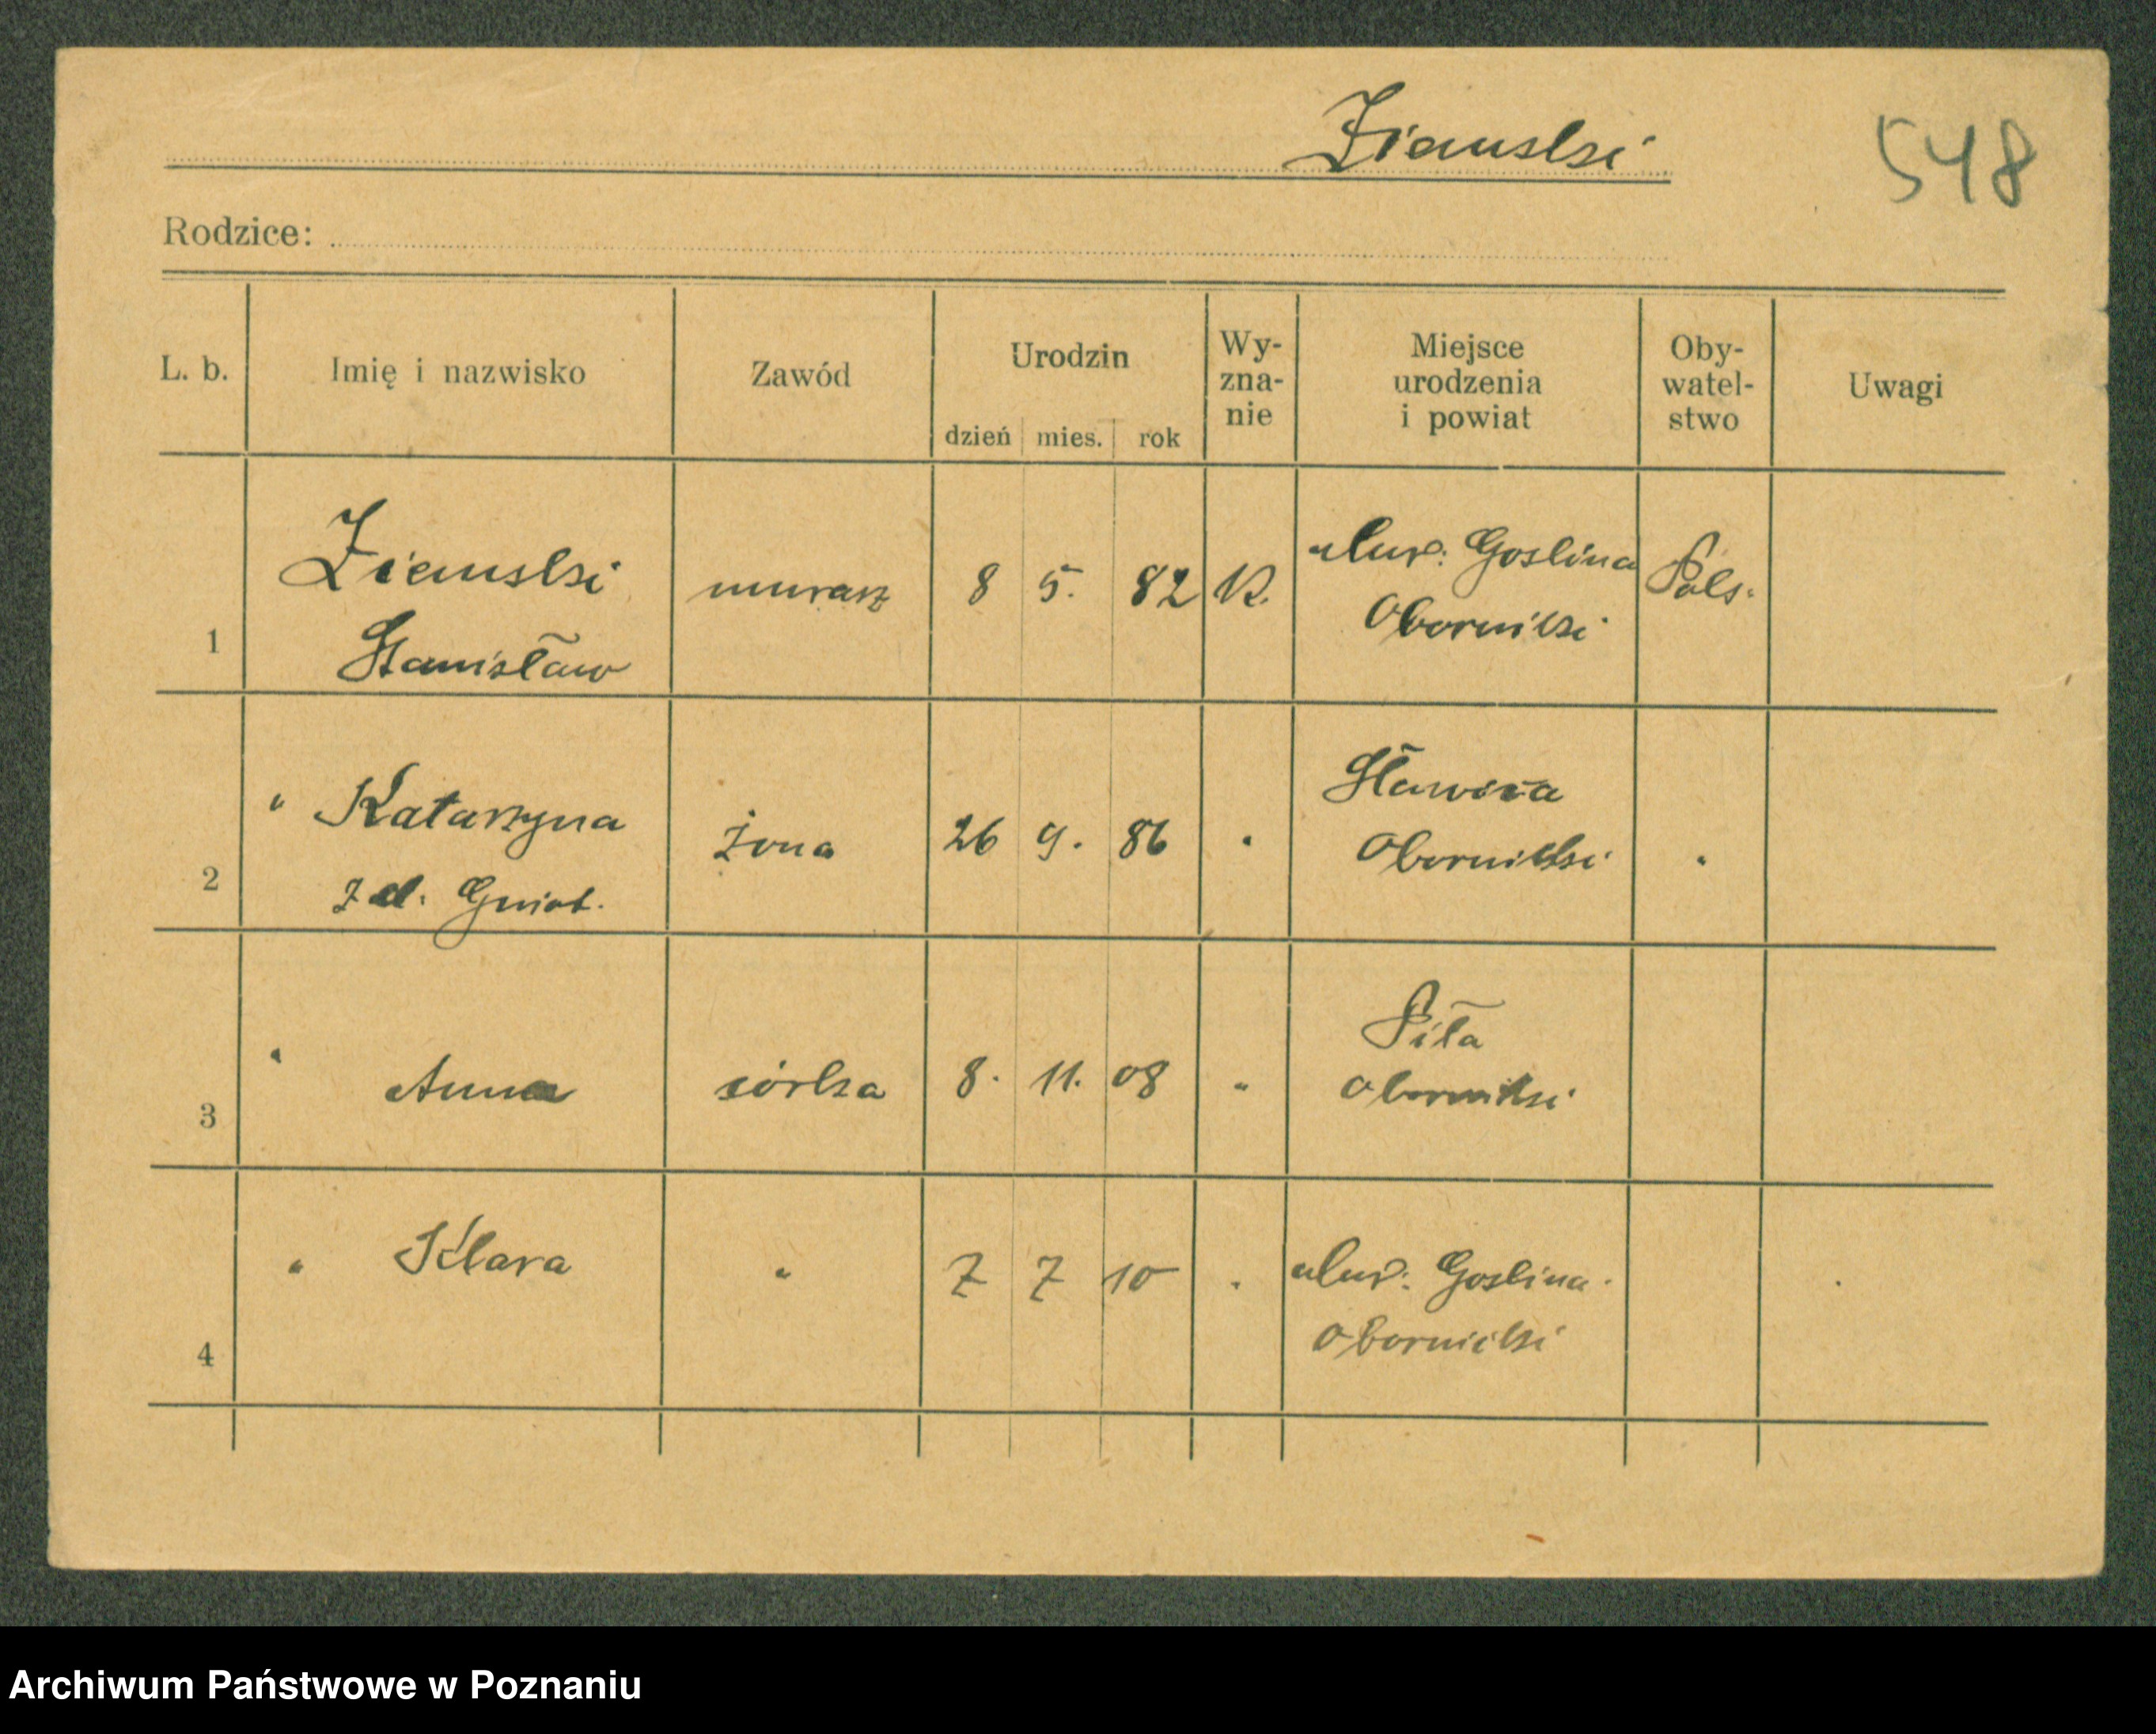 Ziemski
548
Rodzice:
L. b. Imię i nazwisko Zawód Urodzin dzień mies. rok Wy-zna-nie Miejsce urodzenia i powiat Oby-watel-stwo Uwagi
1 Ziemski Stanisław murarz 8 5. 82 K. Mur. Goslina Obornicki Pols.
2 " Katarzyna żona 26 9. 86 " Obornicki "
3 " Anna córka 8. 11. 08 " Piła Obornicki
4 " Klara " 7 7 10 " Mur. Goslina Obornicki
Archiwum Państwowe w Poznaniu